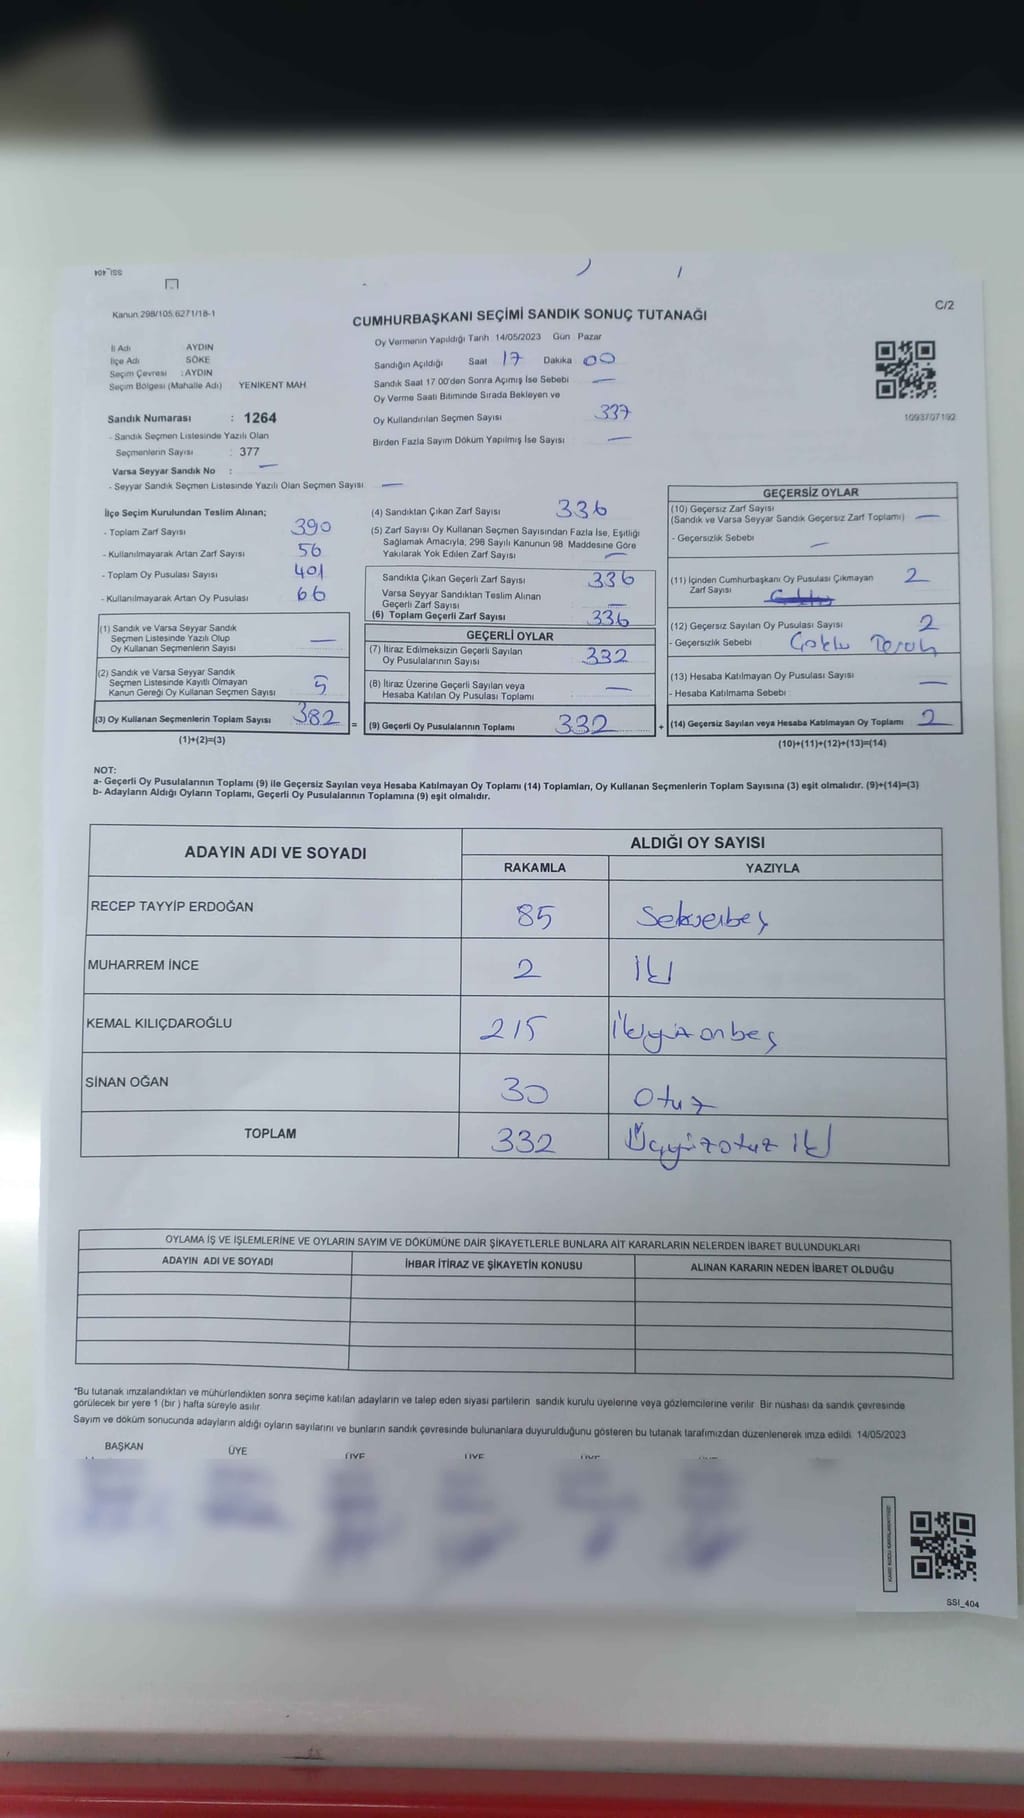 SSI_404
Kanun 298/105,6271/18-1
CUMHURBAŞKANI SEÇİMİ SANDIK SONUÇ TUTANAĞI
C/2
İl Adı AYDIN
İlçe Adı SÖKE
Seçim Çevresi :AYDIN
Seçim Bölgesi (Mahalle Adı) YENIKENT MAH
Oy Vermenin Yapıldığı Tarih 14/05/2023 Gün Pazar
Sandığın Açıldığı Saat 17 Dakika 00
Sandık Saat 17 00'den Sonra Açımış İse Sebebi —
Oy Verme Saati Bitiminde Sırada Bekleyen ve
Oy Kullandırılan Seçmen Sayısı 337
Birden Fazla Sayım Döküm Yapılmış İse Sayısı —
1093707192
Sandık Numarası : 1264
- Sandık Seçmen Listesinde Yazılı Olan
Seçmenlerin Sayısı : 377
Varsa Seyyar Sandık No : —
- Seyyar Sandık Seçmen Listesinde Yazılı Olan Seçmen Sayısı —
İlçe Seçim Kurulundan Teslim Alınan;
- Toplam Zarf Sayısı 390
- Kullanılmayarak Artan Zarf Sayısı 56
- Toplam Oy Pusulası Sayısı 401
- Kullanılmayarak Artan Oy Pusulası 66
(1) Sandık ve Varsa Seyyar Sandık
Seçmen Listesinde Yazılı Olup
Oy Kullanan Seçmenlerin Sayısı —
(2) Sandık ve Varsa Seyyar Sandık
Seçmen Listesinde Kayıtlı Olmayan
Kanun Gereği Oy Kullanan Seçmen Sayısı 5
(3) Oy Kullanan Seçmenlerin Toplam Sayısı 382
(1)+(2)=(3)
(4) Sandıktan Çıkan Zarf Sayısı 336
(5) Zarf Sayısı Oy Kullanan Seçmen Sayısından Fazla İse, Eşitliği
Sağlamak Amacıyla, 298 Sayılı Kanunun 98 Maddesine Göre
Yakılarak Yok Edilen Zarf Sayısı —
Sandıkta Çıkan Geçerli Zarf Sayısı 336
Varsa Seyyar Sandıktan Teslim Alınan
Geçerli Zarf Sayısı —
(6) Toplam Geçerli Zarf Sayısı 336
GEÇERLİ OYLAR
(7) İtiraz Edilmeksizin Geçerli Sayılan
Oy Pusulalarının Sayısı 332
(8) İtiraz Üzerine Geçerli Sayılan veya
Hesaba Katılan Oy Pusulası Toplamı —
= (9) Geçerli Oy Pusulalarının Toplamı 332
GEÇERSİZ OYLAR
(10) Geçersiz Zarf Sayısı
(Sandık ve Varsa Seyyar Sandık Geçersiz Zarf Toplamı) —
- Geçersizlik Sebebi —
(11) İçinden Cumhurbaşkanı Oy Pusulası Çıkmayan
Zarf Sayısı 2
(12) Geçersiz Sayılan Oy Pusulası Sayısı 2
- Geçersizlik Sebebi Çoklu
(13) Hesaba Katılmayan Oy Pusulası Sayısı —
- Hesaba Katılmama Sebebi
+ (14) Geçersiz Sayılan veya Hesaba Katılmayan Oy Toplamı 2
(10)+(11)+(12)+(13)=(14)
NOT:
a- Geçerli Oy Pusulalarının Toplamı (9) ile Geçersiz Sayılan veya Hesaba Katılmayan Oy Toplamı (14) Toplamları, Oy Kullanan Seçmenlerin Toplam Sayısına (3) eşit olmalıdır. (9)+(14)=(3)
b- Adayların Aldığı Oyların Toplamı, Geçerli Oy Pusulalarının Toplamına (9) eşit olmalıdır.
ADAYIN ADI VE SOYADI ALDIĞI OY SAYISI
RAKAMLA YAZIYLA
RECEP TAYYİP ERDOĞAN 85 Seksenbeş
MUHARREM İNCE 2 İki
KEMAL KILIÇDAROĞLU 215 İkiyüzonbeş
SİNAN OĞAN 30 Otuz
TOPLAM 332 Üçyüzotuz iki
OYLAMA İŞ VE İŞLEMLERİNE VE OYLARIN SAYIM VE DÖKÜMÜNE DAİR ŞİKAYETLERLE BUNLARA AİT KARARLARIN NELERDEN İBARET BULUNDUKLARI
ADAYIN ADI VE SOYADI İHBAR İTİRAZ VE ŞİKAYETİN KONUSU ALINAN KARARIN NEDEN İBARET OLDUĞU
*Bu tutanak imzalandıktan ve mühürlendikten sonra seçime katılan adayların ve talep eden siyasi partilerin sandık kurulu üyelerine veya gözlemcilerine verilir Bir nüshası da sandık çevresinde
görülecek bir yere 1 (bir ) hafta süreyle asılır
Sayım ve döküm sonucunda adayların aldığı oyların sayılarını ve bunların sandık çevresinde bulunanlara duyurulduğunu gösteren bu tutanak tarafımızdan düzenlenerek imza edildi 14/05/2023
BAŞKAN ÜYE ÜYE ÜYE ÜYE ÜYE
SSI_404